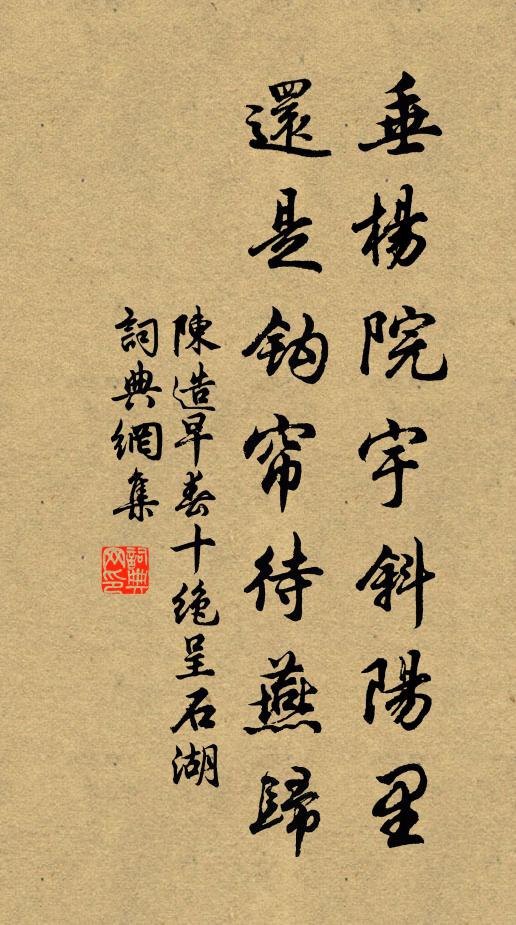 垂楊院宇斜陽里
還是鈎帘待燕歸
陳造早春十絶呈石湖
詞典網集
詞典网印